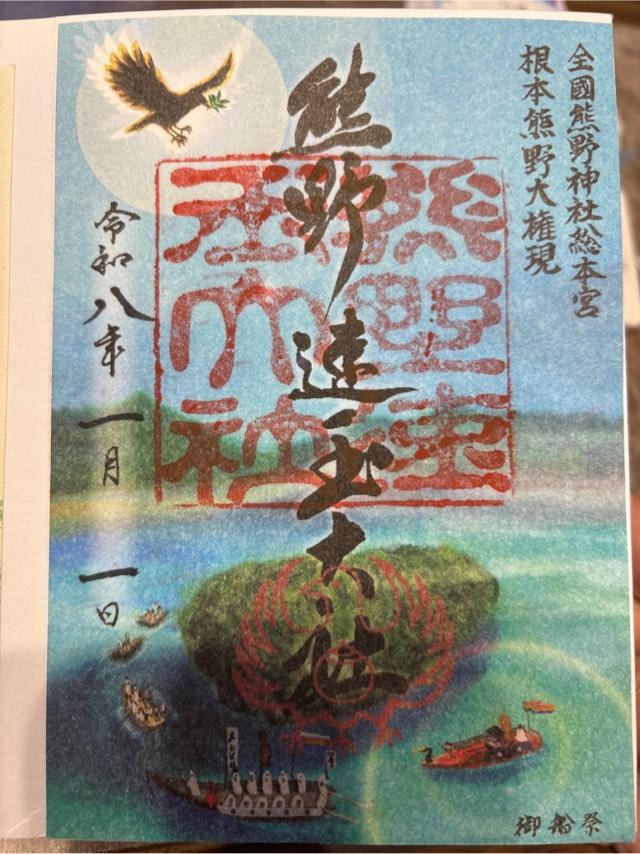 全國熊野神社総本宮
根本熊野大権現
熊野速玉大社
熊野速玉大社
令和八年 一月 一日
御船祭